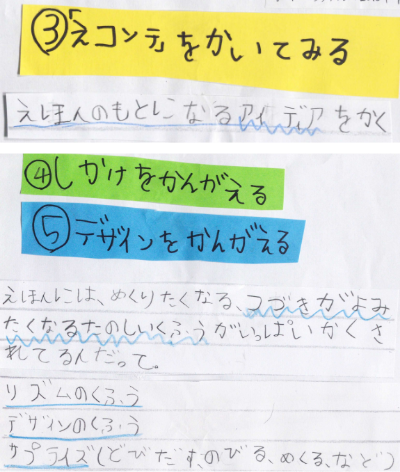 ③「えコンテ」をかいてみる
えほんのもとになるアイディアをかく
④しかけをかんがえる
⑤デザインをかんがえる
えほんには、めくりたくなる、つづきがよみ
たくなるたのしいくふうがいっぱいかくさ
れてるんだって。
リズムのくふう
デザインのくふう
サプライズ(とびだす、のびる、めくる、など)